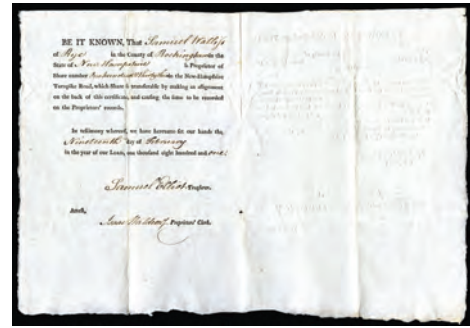 BE IT KNOWN, That Samuel Wallis
of Rye in the County of Rockingham in the
State of New Hampshire is Proprietor of
Share number in the New-Hampshire
Turnpike Road, which Share is transferable by making an assignment
on the back of this certificate, and causing the same to be recorded
on the Proprietors' records.
In testimony whereof, we have hereunto set our hands the
Nineteenth day of February
in the year of our LORD, one thousand eight hundred and one.
Samuel Elliot Treasurer.
Attest,
Proprietors' Clerk.